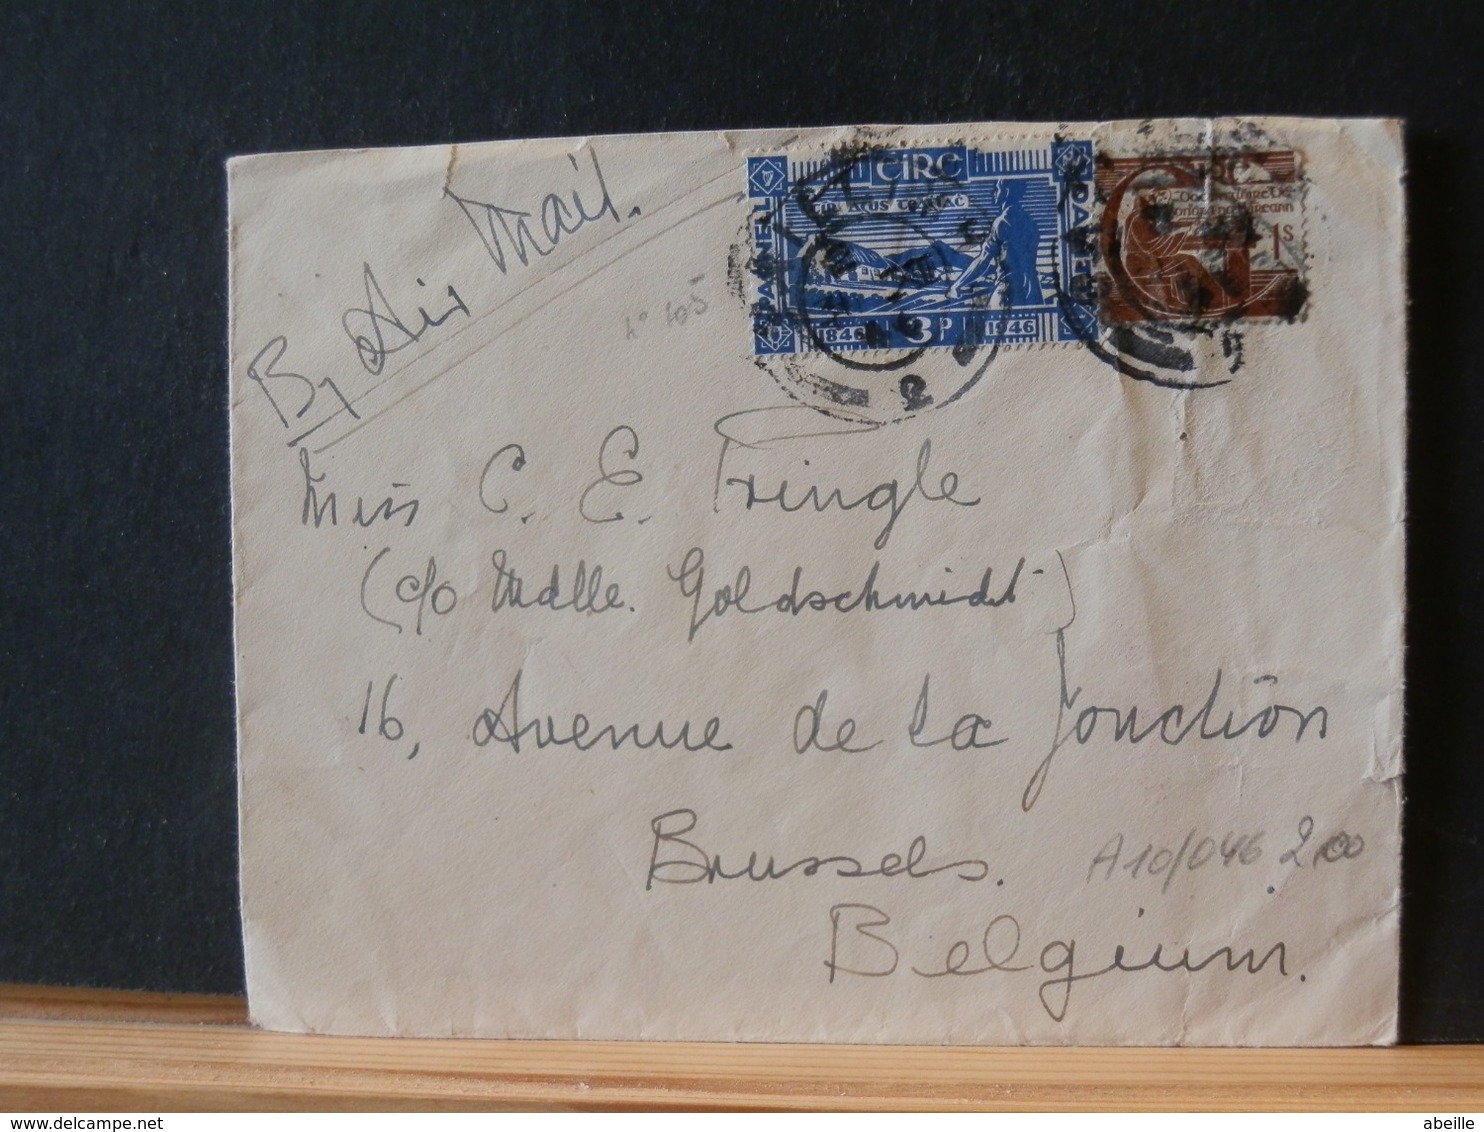 By Air Mail.
n° 105
ÉIRE
PARNEL
1846 3P 1946
1s
Miss C. E. Pringle
(c/o Mdlle. Goldschmidt)
16, Avenue de la Jonction
Brussels.
A10/046 2.00
Belgium.
www.delcampe.net
abeille